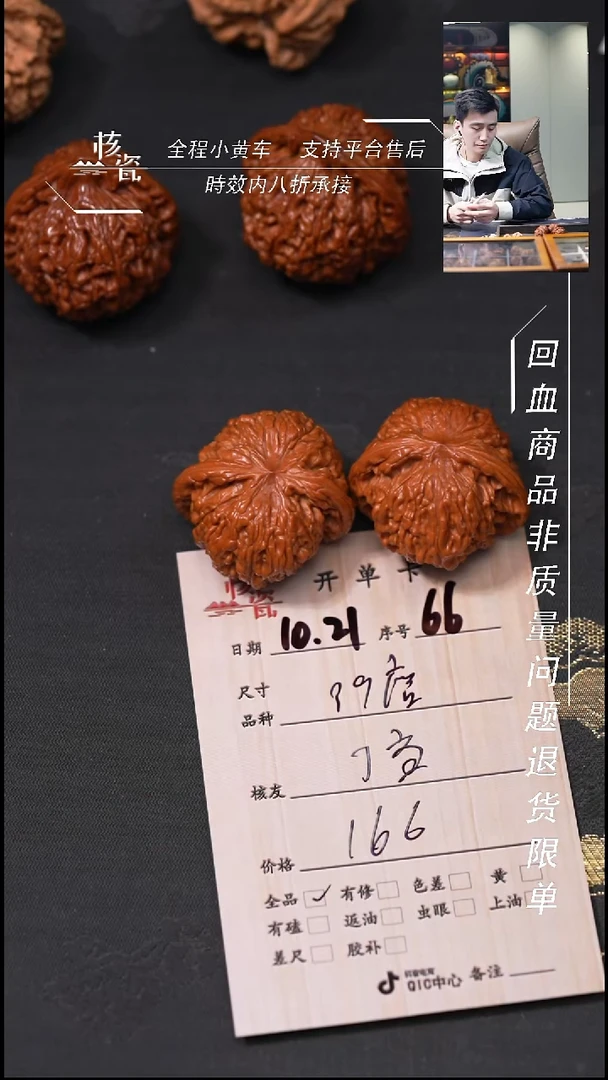 核瓷
全程小黄车 支持平台售后
時效内八折承接
回血商品非质量问题退货限单
核瓷 开单卡
日期 10.21 序号 66
尺寸
品种 39
核友
价格 166
全品 ✓ 有修 色差 黄
有磕 返油 虫眼 上油
差尺 胶补
抖音电商
QIC中心 备注